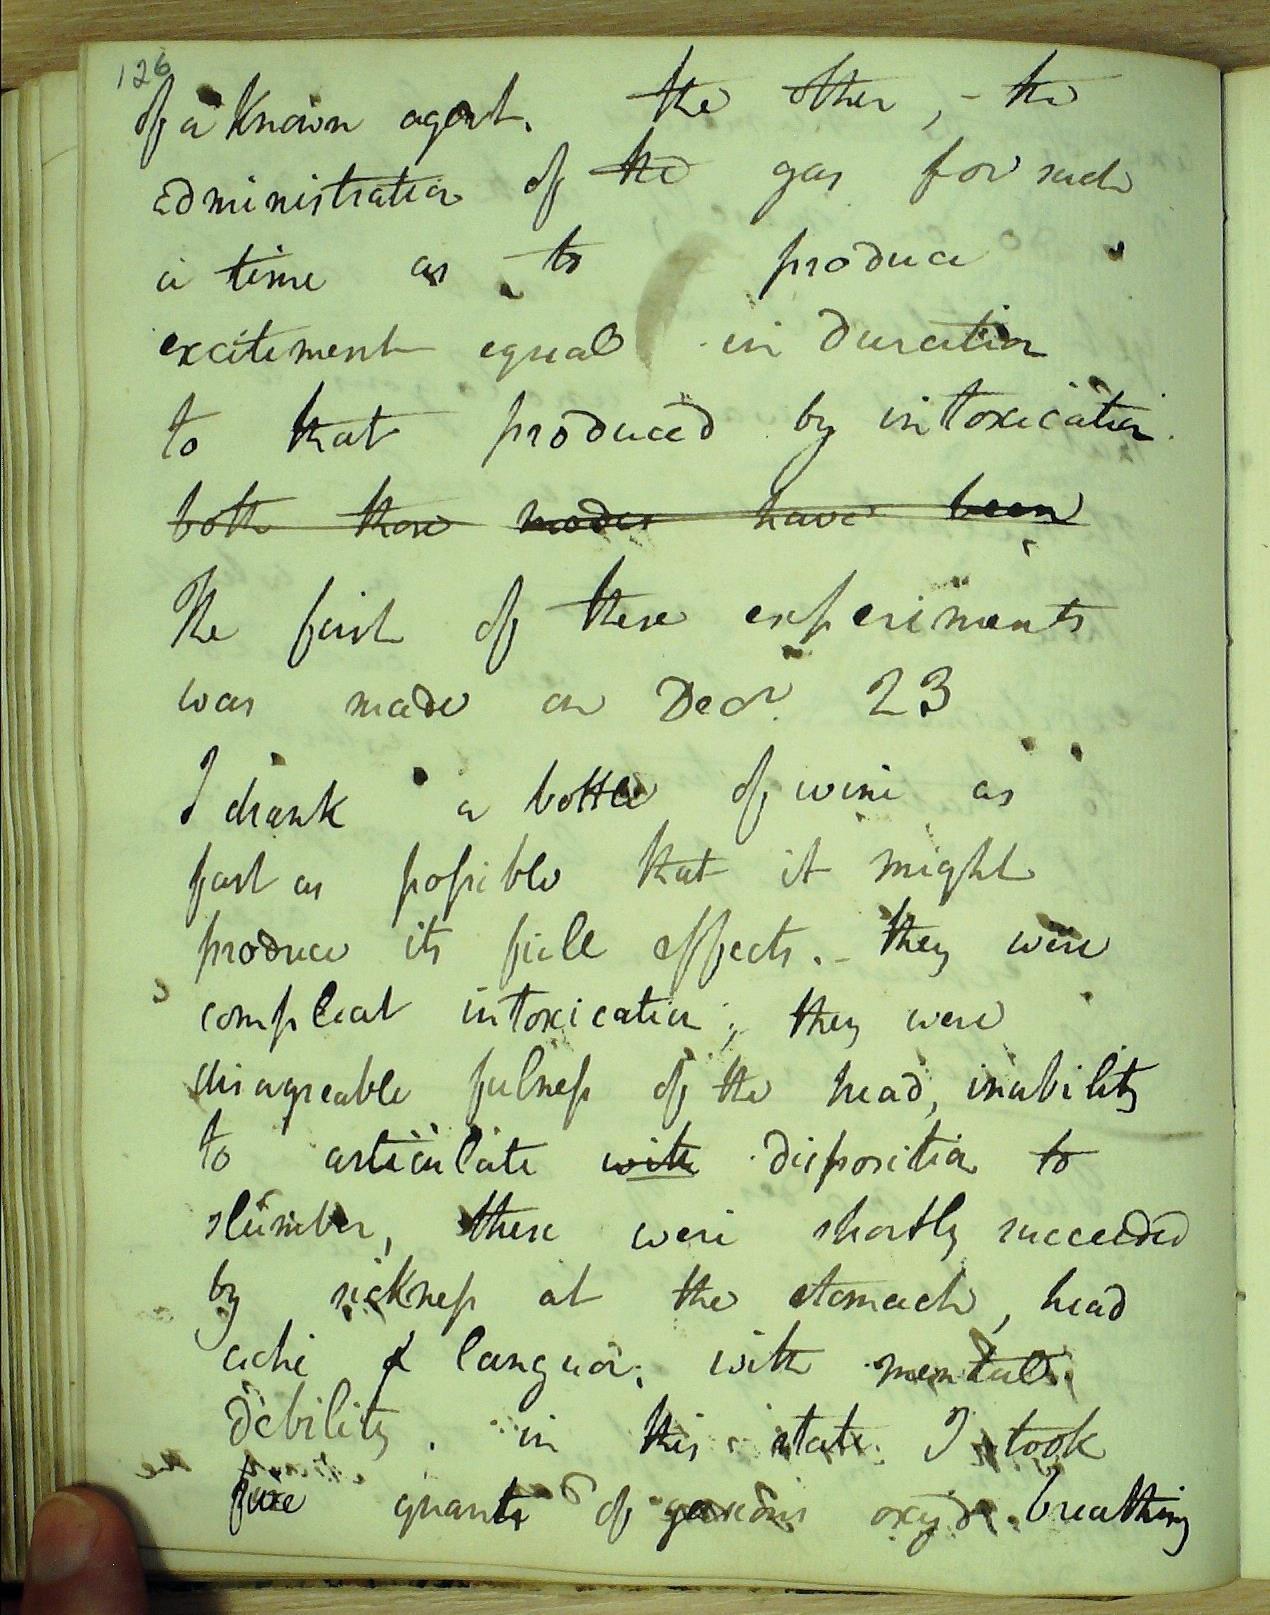 126
of a known agent. the other, - the
administration of the gas for such
a time as to produce
excitement equal in duration
to that produced by intoxication.
both these modes have been
The first of these experiments
was made on Decr. 23
I drank a bottle of wine as
fast as possible that it might
produce its full effects. - they were
compleat intoxication; they were
disagreable fulness of the head, inability
to articulate with disposition to
slumber, these were shortly succeeded
by sickness at the stomach, head
ache & languor; with mental
debility. in this state I took
five quarts of gaseous oxyde breathing